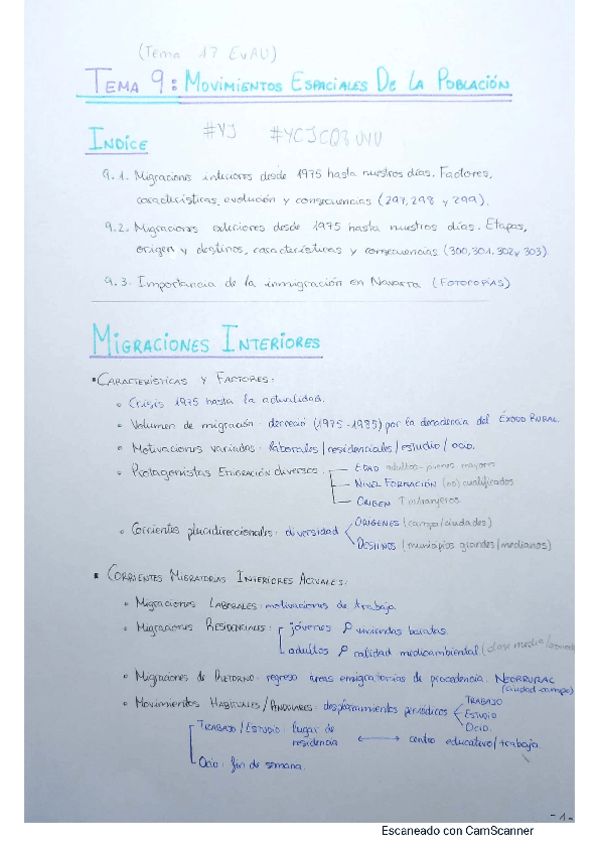 (Tema 17 EvAU)
TEMA 9: MOVIMIENTOS ESPACIALES DE LA POBLACIÓN
ÍNDICE
#YJ #YCJCQ3UVU
9.1. Migraciones interiores desde 1975 hasta nuestros días. Factores,
características, evolución y consecuencias (297, 298 y 299).
9.2. Migraciones exteriores desde 1975 hasta nuestros días. Etapas,
origen y destinos, características y consecuencias (300, 301, 302 y 303).
9.3. Importancia de la inmigración en Navarra (FOTOCOPIAS)
MIGRACIONES INTERIORES
▪ CARACTERÍSTICAS Y FACTORES:
∘ Crisis 1975 hasta la actualidad.
∘ Volumen de migración: decreció (1975-1985) por la decadencia del ÉXODO RURAL.
∘ Motivaciones variadas: laborales/residenciales/estudio/ocio.
∘ Protagonistas EMIGRACIÓN diversos: EDAD adultos-jóvenes mayores
NIVEL FORMACIÓN (no) cualificados
ORIGEN extranjeros
∘ Corrientes pluridireccionales: diversidad ORÍGENES (campo/ciudades)
DESTINOS (municipios grandes/medianos)
▪ CORRIENTES MIGRATORIAS INTERIORES ACTUALES:
∘ Migraciones LABORALES: motivaciones de trabajo.
∘ Migraciones RESIDENCIALES: jóvenes viviendas baratas.
adultos calidad medioambiental (clase media/
∘ Migraciones de RETORNO: regreso áreas emigratorias de procedencia. NEORRURAL
(ciudad-campo)
∘ Movimientos HABITUALES/PENDULARES: desplazamientos periódicos TRABAJO
ESTUDIO
OCIO.
TRABAJO/ESTUDIO: lugar de
residencia ⟷ centro educativo/trabajo.
Ocio: fin de semana.
-1-
Escaneado con CamScanner